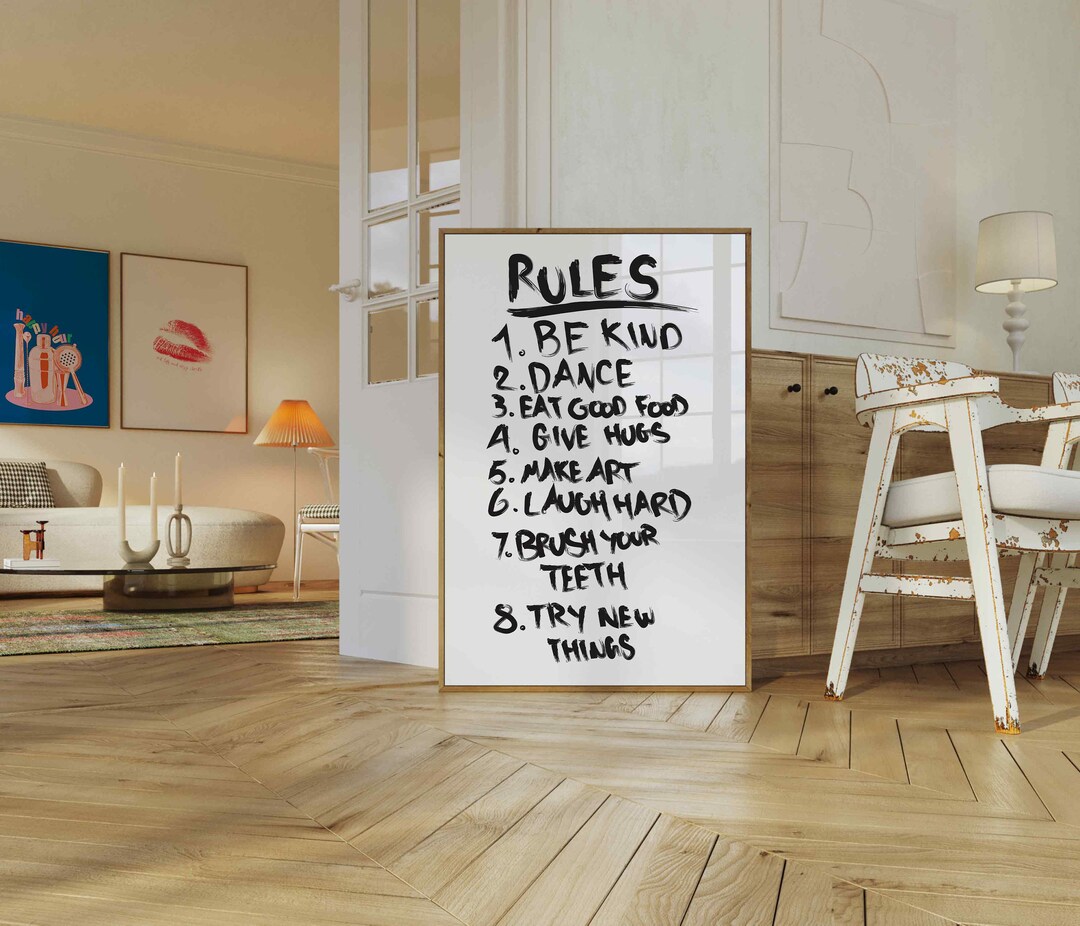 happy hour
RULES
1. BE KIND
2. DANCE
3. EAT GOOD FOOD
4. GIVE HUGS
5. MAKE ART
6. LAUGH HARD
7. BRUSH YOUR
TEETH
8. TRY NEW
THINGS